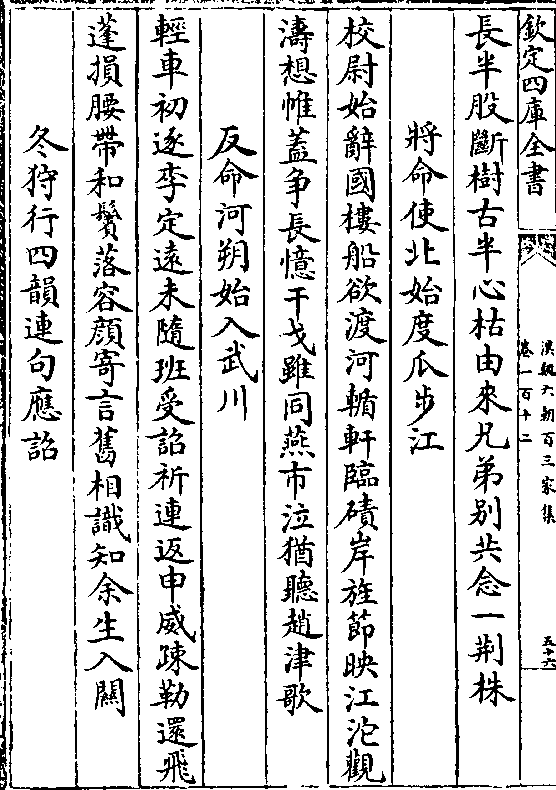 欽定四庫全書
漢魏六朝百三家集
卷一百十二
五十六
長半股斷樹古半心枯由來兄弟别共念一荆株
將命使北始度瓜步江
校尉始辭國樓船欲渡河輴軒臨磧岸旌節映江沱觀
濤想帷蓋争長憶干戈雖同燕市泣猶聽趙津歌
反命河朔始入武川
輕車初逐李定遠未隨班受詔祈連返申威疎勒還飛
蓬損腰帶和鬢落容顔寄言舊相識知余生入關
冬狩行四韻連句應詔